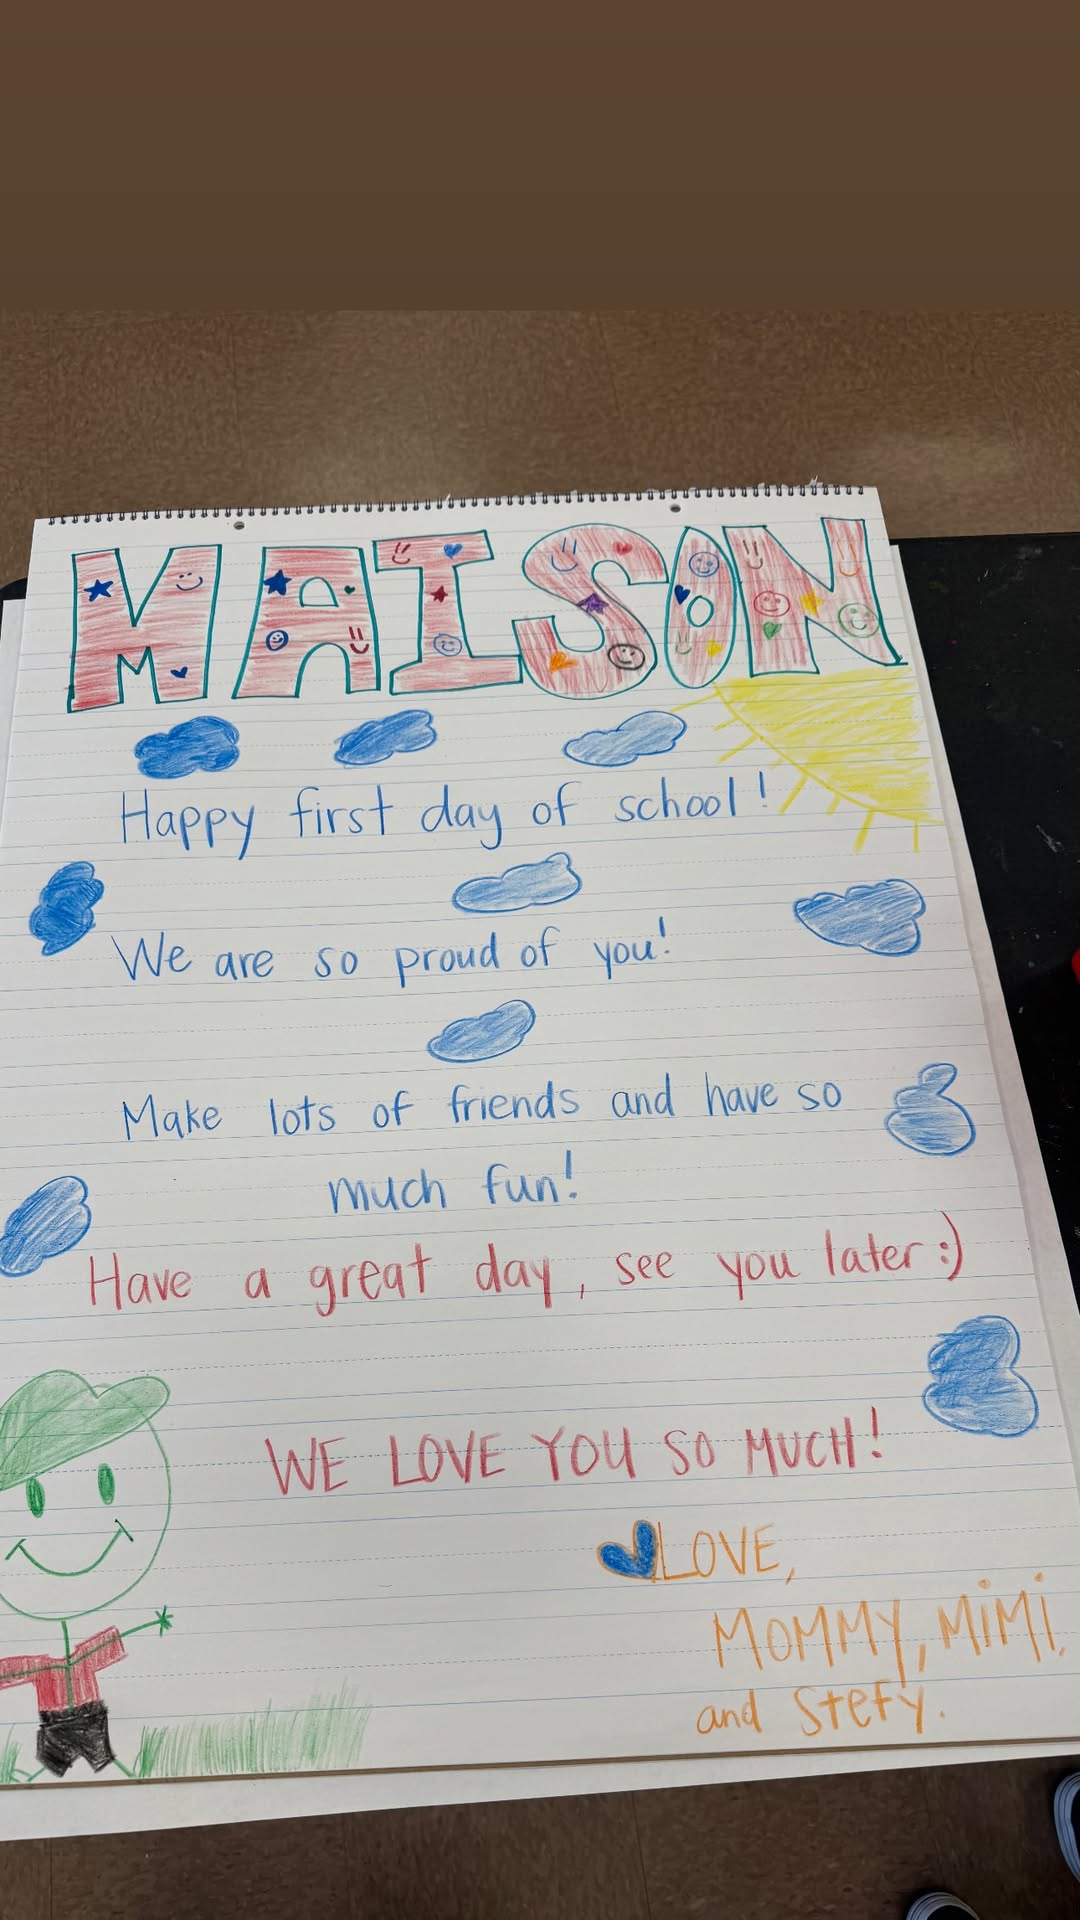 MAISON
Happy first day of school!
We are so proud of you!
Make lots of friends and have so
much fun!
Have a great day, see you later :)
WE LOVE YOU SO MUCH!
LOVE,
MOMMY, MiMi,
and Stefy.